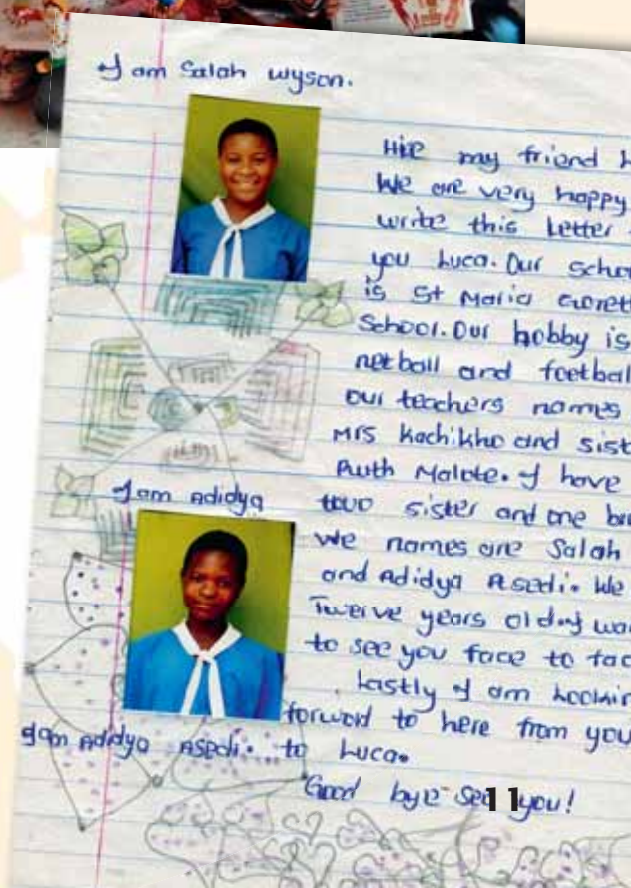 I am Salah Wyson.
Hie my friend
We are very happy
write this Letter
you Luca. Our
is St Maria
School. Our hobby is
netball and
our teachers names
Mrs Kachikho and
Ruth Malote. I have
I am Adidya
two sister and one
we names are Salah
and Adidya Asedi. We
Twerve years old. I
to see you face to
Lastly I am
forword to here from you
I am Adidya Asedi. to Luca.
Good bye see you!
11